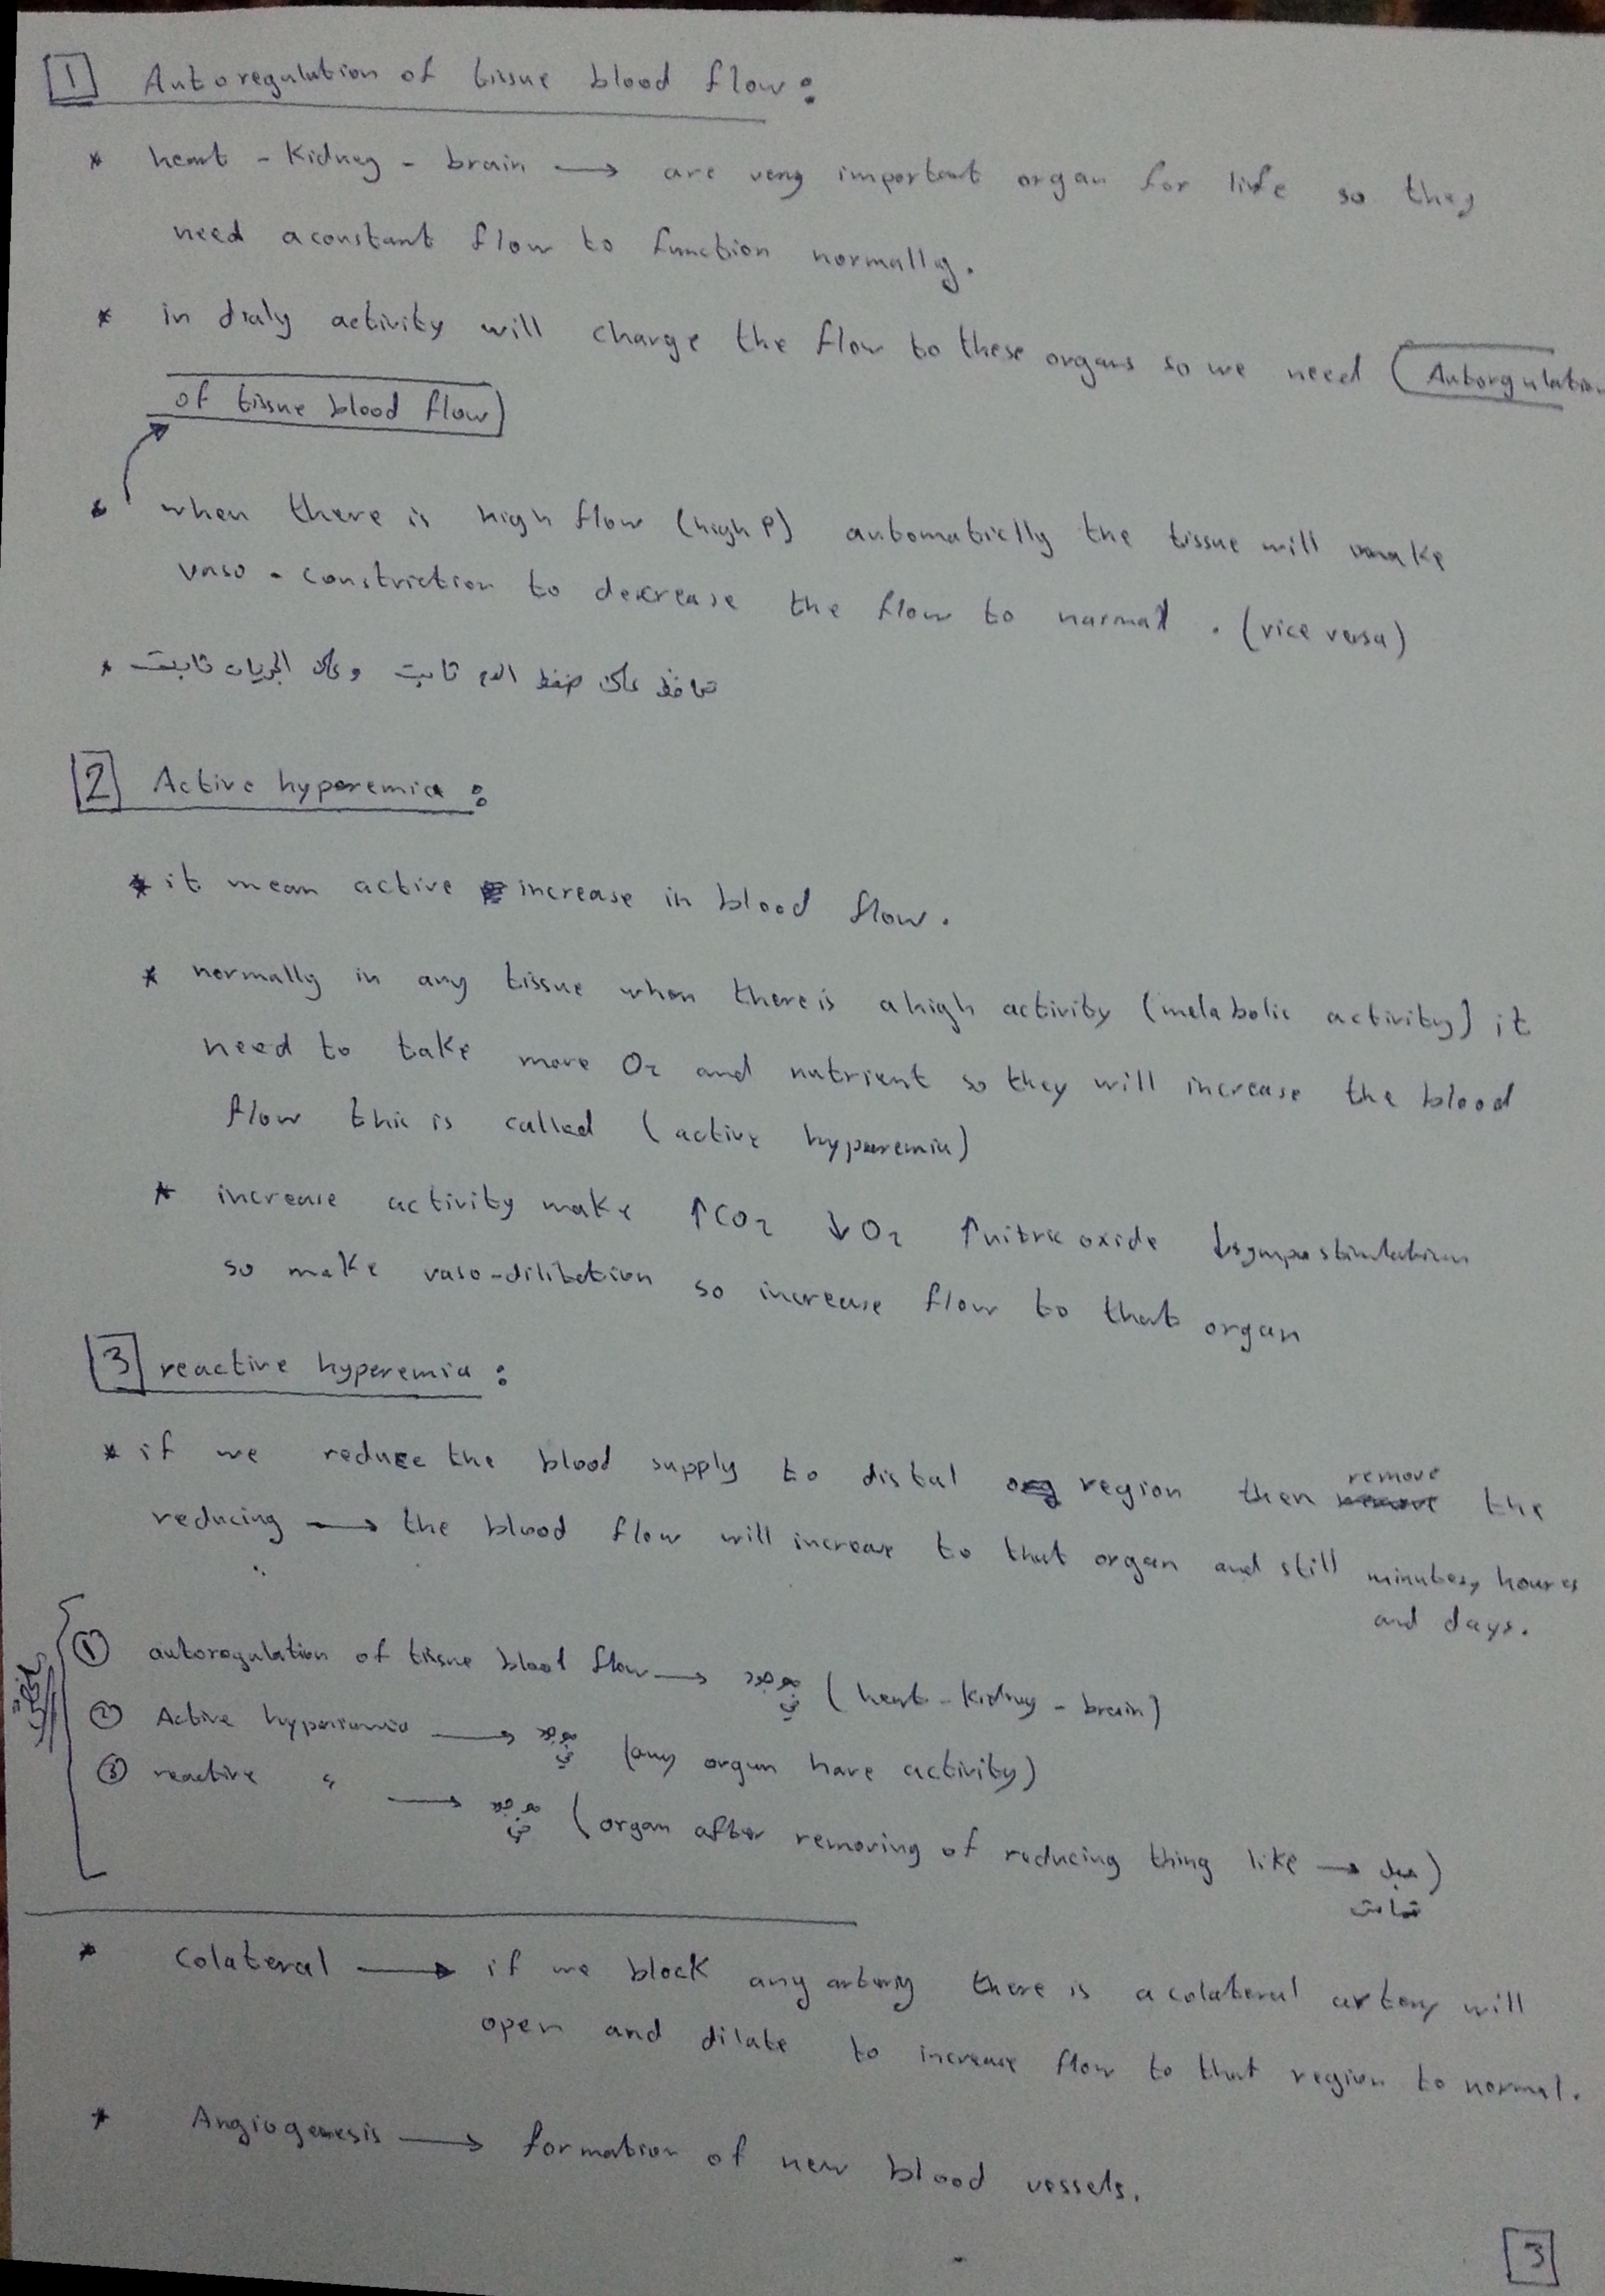 1 Autoregulation of tissue blood flow:
* heart - Kidney - brain → are very important organ for life so they
need a constant flow to function normally.
* in dialy activity will charge the flow to these organs so we need (Autorgulation
of tissue blood flow)
* when there is high flow (high P) automatically the tissue will make
vaso - constriction to decrease the flow to normal. (vice versa)
* تحافظ على ضغط الدم ثابت وعلى الجريان ثابت
2 Active hyperemia:
* it mean active increase in blood flow.
* normally in any tissue when there is a high activity (metabolic activity) it
need to take more O2 and nutrient so they will increase the blood
flow this is called (active hyperemia)
* increase activity make ↑CO2 ↓O2 ↑nitric oxide ↓sympa stimulation
so make vaso-dilitation so increase flow to that organ
3 reactive hyperemia:
* if we reduce the blood supply to distal region then remove the
reducing → the blood flow will increase to that organ and still minutes, houres
and days.
① autoregulation of tissue blood flow → موجود في (heart - kidney - brain)
② Active hyperemia → موجود في (any organ have activity)
③ reactive " → موجود في (organ after removing of reducing thing like →
* Colateral → if we block any artery there is a colateral artery will
open and dilate to increase flow to that region to normal.
* Angiogenesis → formation of new blood vessels.
3